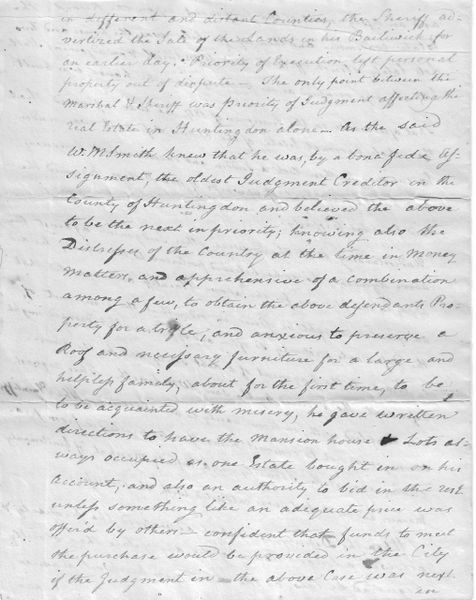 in different and distant Counties, the Sheriff ad-
vertized the Sale of the Lands in his Bailiwick for
an earlier day. Priority of Execution left personal
property out of dispute — The only point between the
Marshal & Sheriff was Priority of Judgment affecting the
real Estate in Huntingdon alone — As the said
W. M Smith knew that he was, by a bona fide As-
signment, the oldest Judgment Creditor in the
County of Huntingdon and believed the above
to be the next in priority; knowing also the
Distresses of the Country at the time in Money
Matters, and apprehensive of a combination
among a few, to obtain the above defendants Pro-
perty for a trifle; and anxious to preserve a
Roof and necessary furniture for a large and
helpless family, about for the first time, to be
to be acquainted with misery, he gave written
directions to have the Mansion house & Lots al-
ways occupied as one Estate bought in on his
Account, and also an authority to bid in the rest
unless something like an adequate price was
offer'd by others — confident that funds to meet
the purchase would be provided in the City
if the Judgment in the above Case was next
in